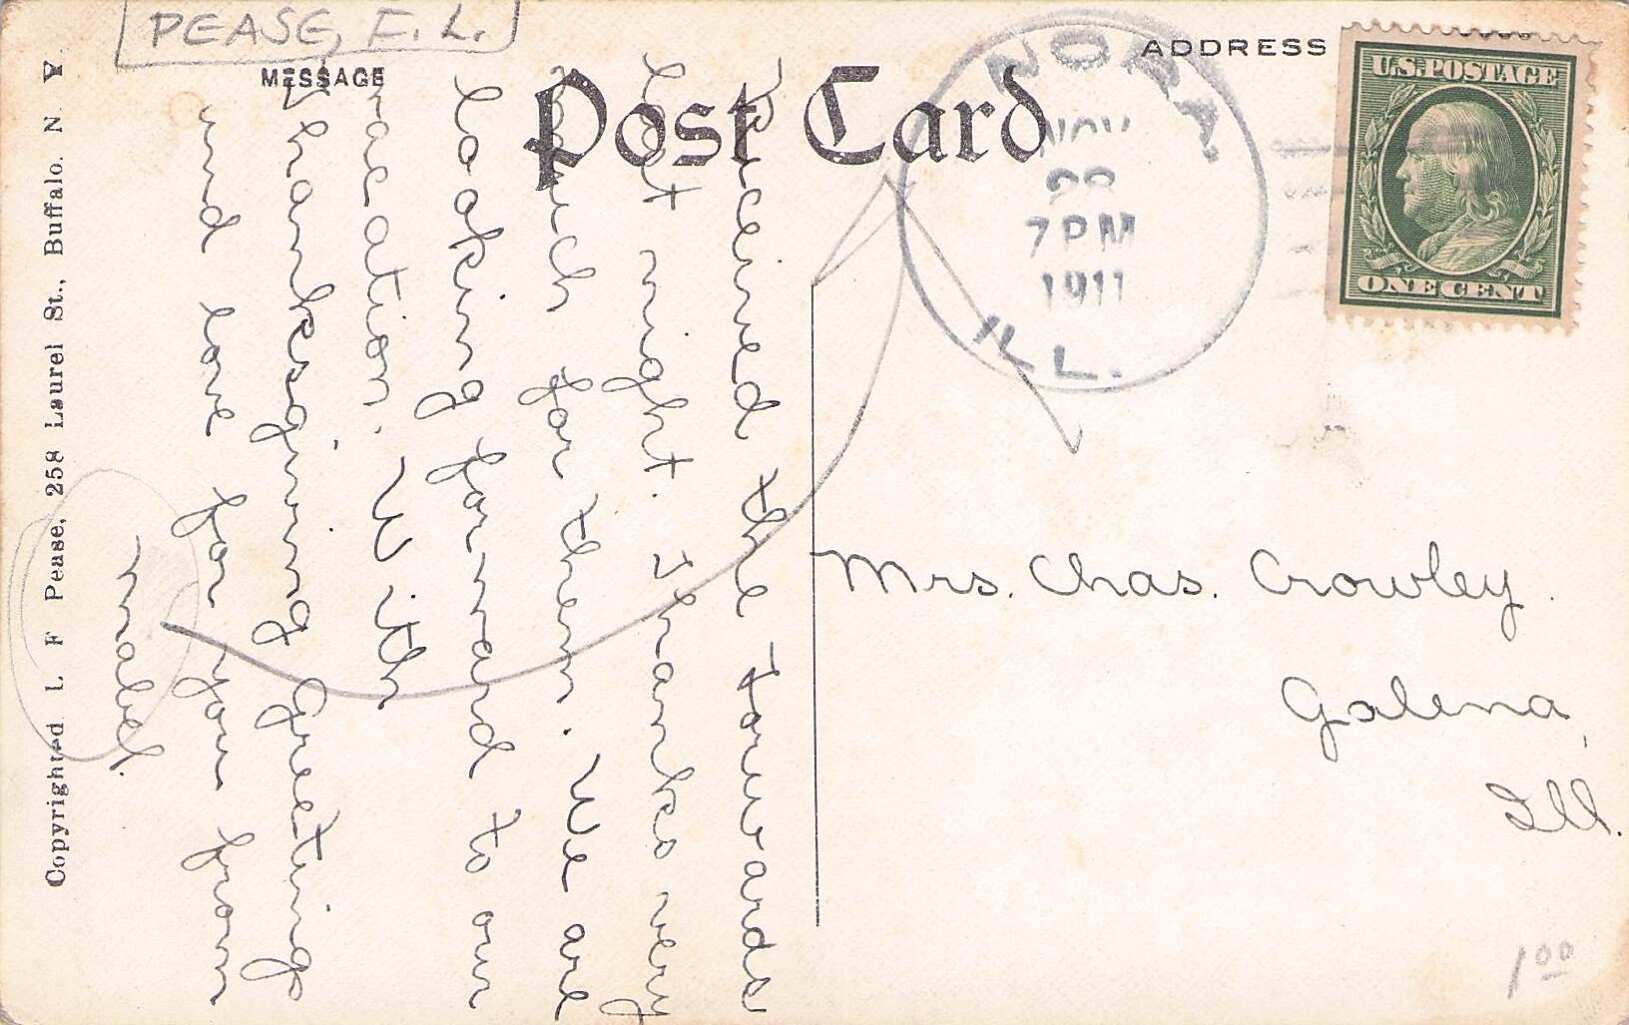 PEASE, F. L.
MESSAGE
Post Card
ADDRESS
NORA
NOV
28
7 PM
1911
ILL.
U.S. POSTAGE
ONE CENT
Received the Forwards
Last night. Thanks very
much for them. We are
looking forward to our
vacation. With
Thanksgiving Greeting
and love for you from
Mabel.
Mrs. Chas. Crowley.
Galena,
Ill.
Copyrighted L F Pease, 258 Laurel St., Buffalo. N Y.
1.00